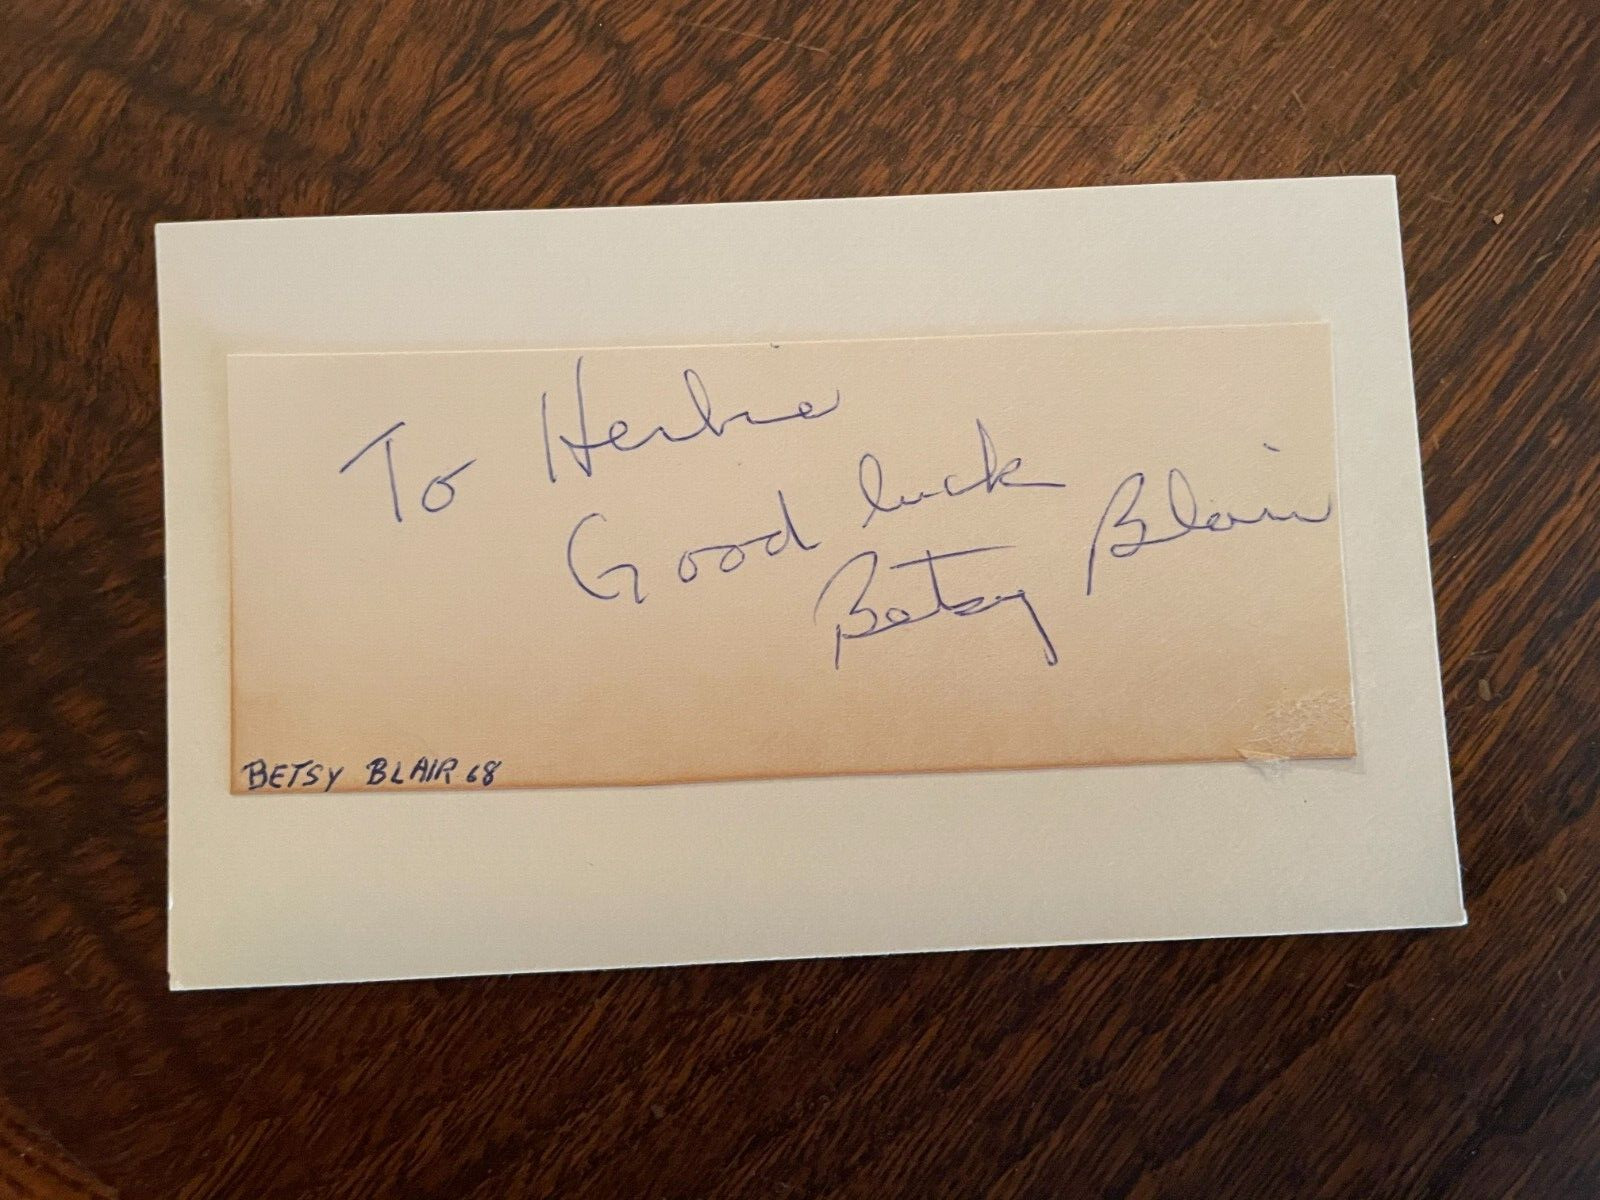 To Herbie
Good luck
Betsy Blair
BETSY BLAIR 68